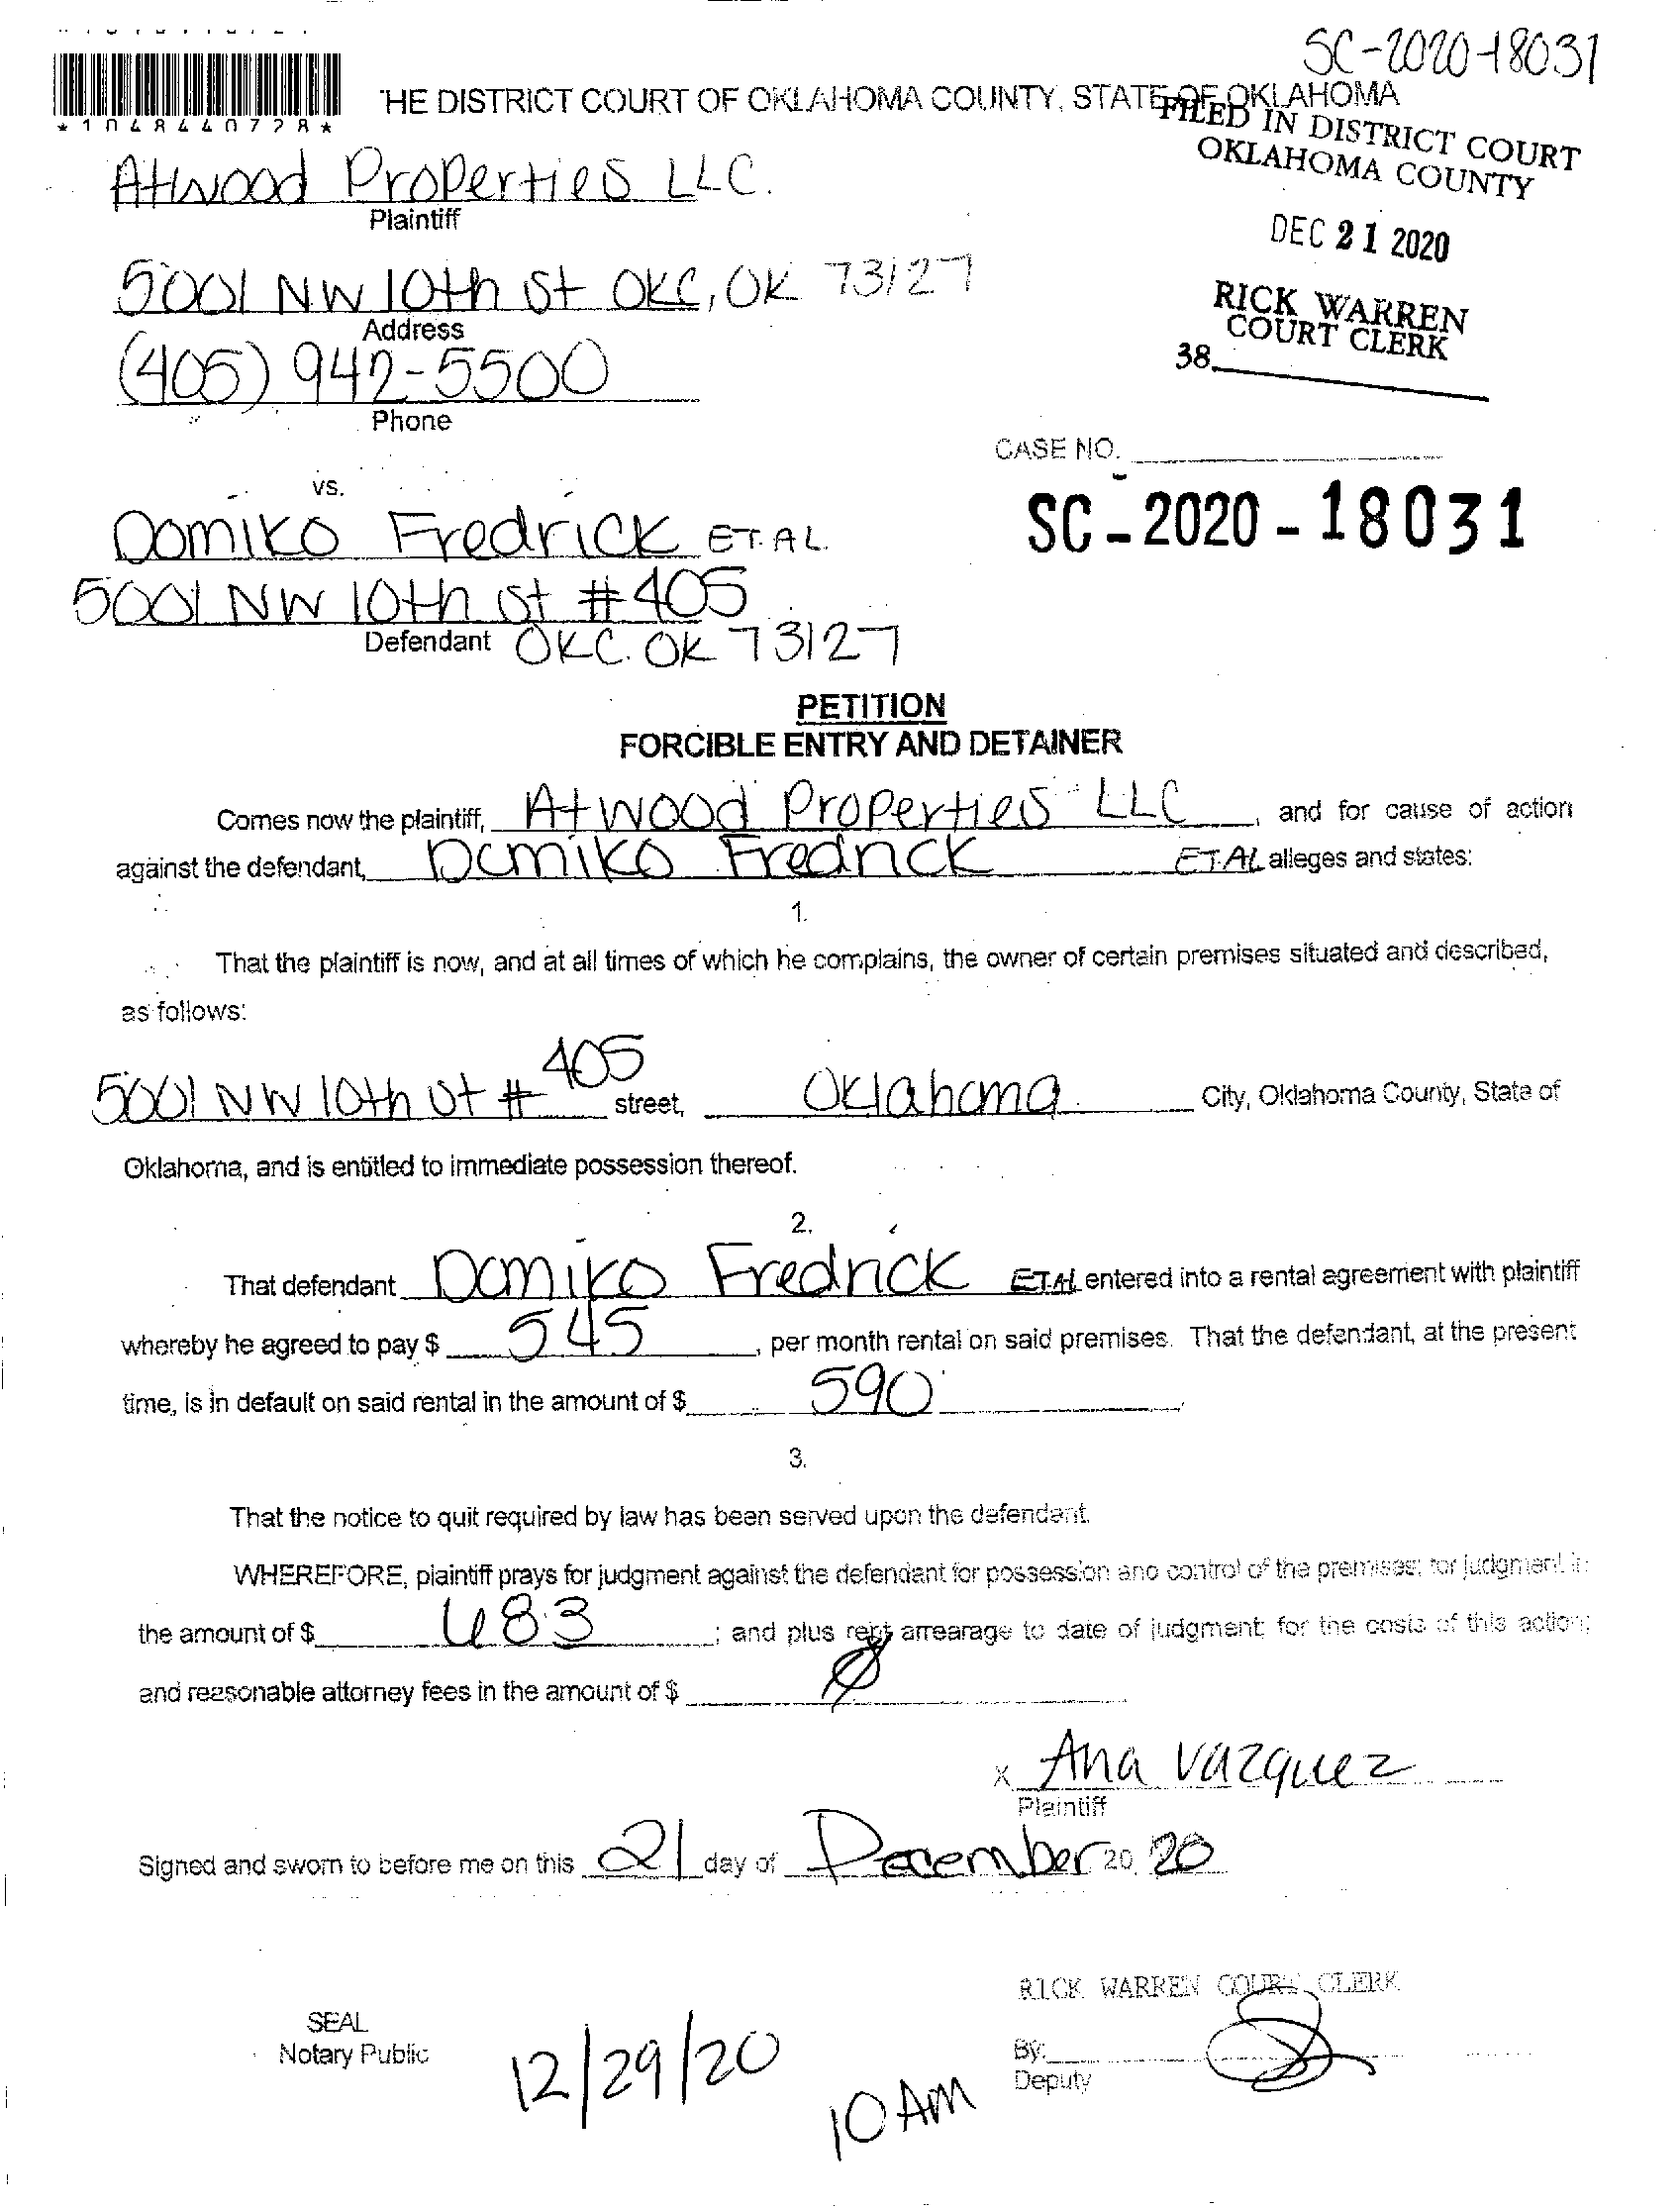 SC-2020-18031
*1048440728*
THE DISTRICT COURT OF OKLAHOMA COUNTY, STATE OF OKLAHOMA
FILED IN DISTRICT COURT
OKLAHOMA COUNTY
Atwood Properties LLC.
Plaintiff
DEC 21 2020
5001 NW 10th St OKC, OK 73127
Address
RICK WARREN
COURT CLERK
38
(405) 942-5500
Phone
CASE NO.
vs.
SC-2020-18031
Domiko Fredrick ET.AL.
5001 NW 10th St #405
Defendant OKC. OK 73127
PETITION
FORCIBLE ENTRY AND DETAINER
Comes now the plaintiff, Atwood Properties LLC, and for cause of action
against the defendant, Domiko Fredrick ET.AL alleges and states:
1.
That the plaintiff is now, and at all times of which he complains, the owner of certain premises situated and described,
as follows:
5001 NW 10th St # 405 street, Oklahoma City, Oklahoma County, State of
Oklahoma, and is entitled to immediate possession thereof.
2.
That defendant Domiko Fredrick ET.AL entered into a rental agreement with plaintiff
whereby he agreed to pay $ 545, per month rental on said premises. That the defendant, at the present
time, is in default on said rental in the amount of $ 590
3.
That the notice to quit required by law has been served upon the defendant.
WHEREFORE, plaintiff prays for judgment against the defendant for possession and control of the premises; for judgment in
the amount of $ 683; and plus rent arrearage to date of judgment; for the costs of this action;
and reasonable attorney fees in the amount of $ Ø
x Ana Vazquez
Plaintiff
Signed and sworn to before me on this 21 day of December 20 20
RICK WARREN COURT CLERK
SEAL
Notary Public
12/29/20
By:
Deputy
10 AM